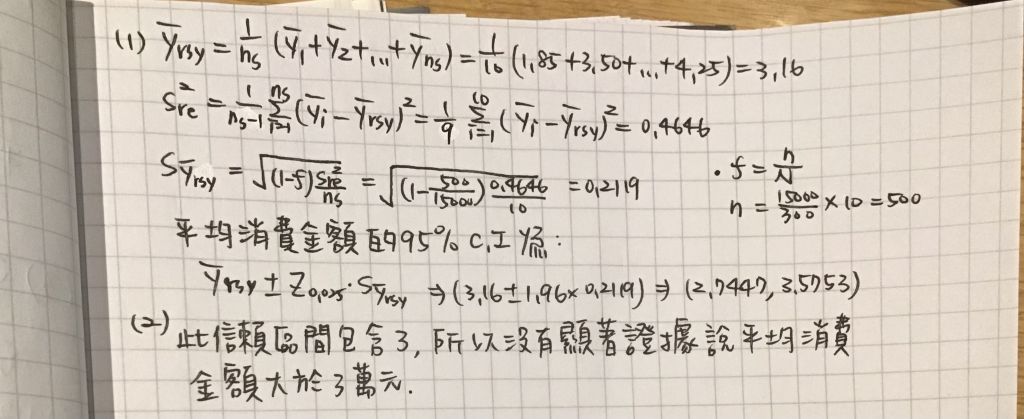 (1) ȳrsy = 1/ns (ȳ1 + ȳ2 + ... + ȳns) = 1/10 (1.85 + 3.50 + ... + 4.25) = 3.16
Sre² = 1/(ns-1) Σ(i=1 to ns) (ȳi - ȳrsy)² = 1/9 Σ(i=1 to 10) (ȳi - ȳrsy)² = 0.4646
Sȳrsy = √((1-f) Sre²/ns) = √((1 - 500/15000) 0.4646/10) = 0.2119
· f = n/N
n = 15000/300 × 10 = 500
平均消費金額的95% C.I 為:
ȳrsy ± Z0.025 · Sȳrsy ⇒ (3.16 ± 1.96 × 0.2119) ⇒ (2.7447, 3.5753)
(2) 此信賴區間包含3, 所以沒有顯著證據說平均消費
金額大於3萬元.